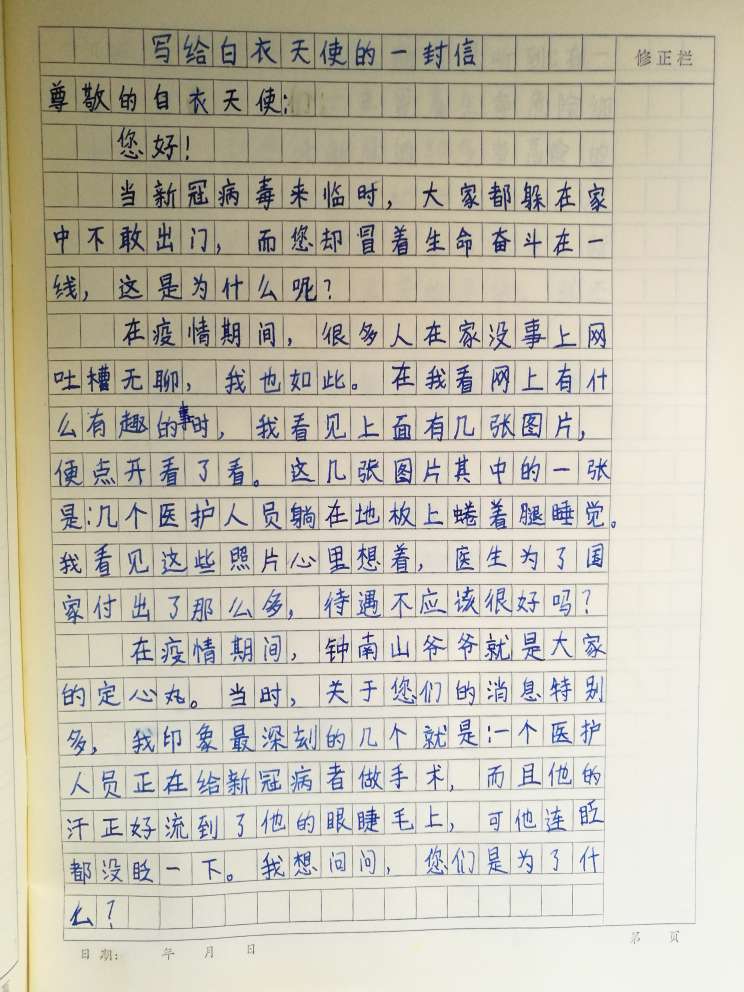 写给白衣天使的一封信
修正栏
尊敬的白衣天使:
您好!
当新冠病毒来临时,大家都躲在家
中不敢出门,而您却冒着生命奋斗在一
线,这是为什么呢?
在疫情期间,很多人在家没事上网
吐槽无聊,我也如此。在我看网上有什
么有趣的事时,我看见上面有几张图片,
便点开看了看。这几张图片其中的一张
是:几个医护人员躺在地板上蜷着腿睡觉。
我看见这些照片心里想着,医生为了国
家付出了那么多,待遇不应该很好吗?
在疫情期间,钟南山爷爷就是大家
的定心丸。当时,关于您们的消息特别
多,我印象最深刻的几个就是:一个医护
人员正在给新冠病者做手术,而且他的
汗正好流到了他的眼睫毛上,可他连眨
都没眨一下。我想问问,您们是为了什
么?
日期: 年 月 日
第 页